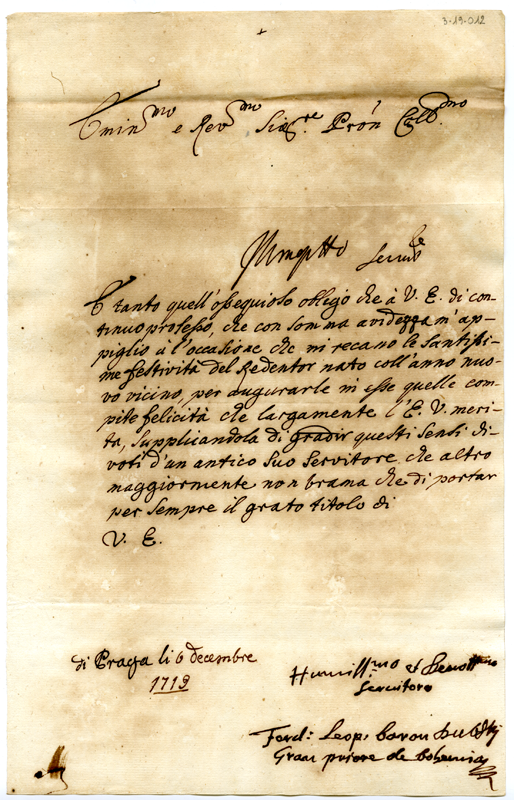 3-19-012
Emin.mo e Rev.mo Sig.re Prōn Coll.mo
È tanto quell'ossequioso obligo che à V. E. di con-
tinuo professo, che con somma avidezza m'ap-
piglio à l'occasione che mi recano le santissi-
me festività del Redentor nato coll'anno nuo-
vo vicino, per augurarle in esse quelle com-
pite felicità che largamente l'E. V. meri-
ta, supplicandola di gradir questi sensi di-
voti d'un antico suo servitore che altro
maggiormente non brama che di portar
per sempre il grato titolo di
V. E.
di Praga li 6 decembre
1719
Humiliss.mo et Devotiss.mo
Servitore
Ferd: Leop: baron
Gran priore de bohemia